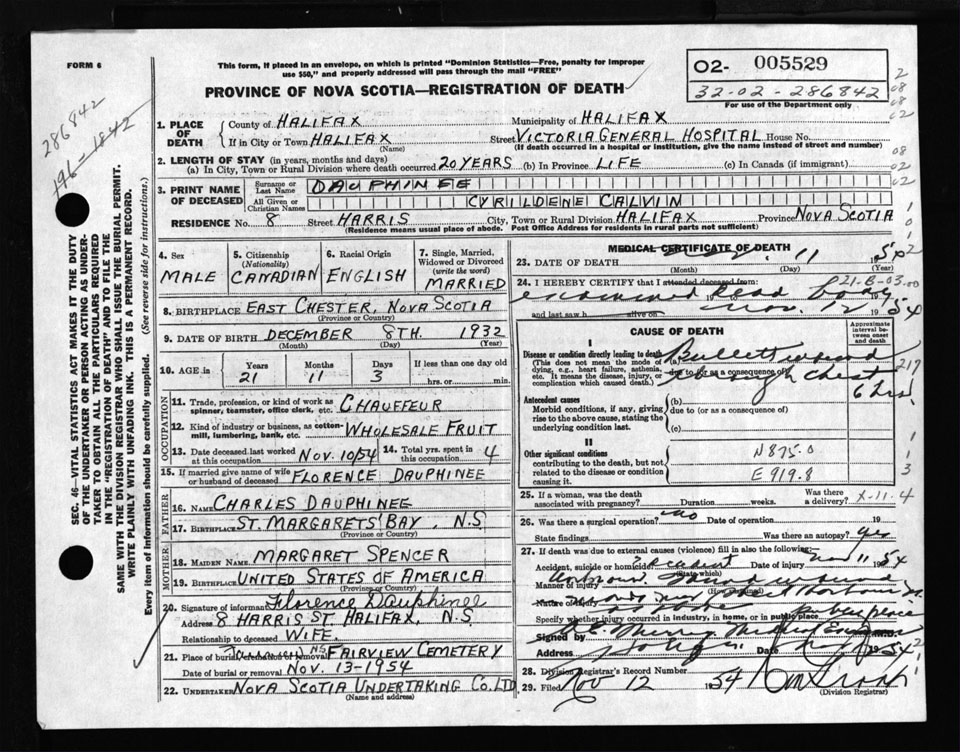 FORM 6
This form, if placed in an envelope, on which is printed "Dominion Statistics—Free, penalty for improper
use $50," and properly addressed will pass through the mail "FREE"
PROVINCE OF NOVA SCOTIA—REGISTRATION OF DEATH
O2- 005529
32-02-286842
For use of the Department only
286842
SEC. 46—VITAL STATISTICS ACT MAKES IT THE DUTY
OF THE UNDERTAKER OR PERSON ACTING AS UNDER-
TAKER TO OBTAIN ALL THE PARTICULARS REQUIRED
IN THE "REGISTRATION OF DEATH" AND TO FILE THE
SAME WITH THE DIVISION REGISTRAR WHO SHALL ISSUE THE BURIAL PERMIT.
WRITE PLAINLY WITH UNFADING INK. THIS IS A PERMANENT RECORD.
Every item of information should be carefully supplied. (See reverse side for instructions.)
1. PLACE OF DEATH
County of HALIFAX Municipality of HALIFAX
If in City or Town HALIFAX Street VICTORIA GENERAL HOSPITAL House No.
(Name) (If death occurred in a hospital or institution, give the name instead of street and number)
2. LENGTH OF STAY (in years, months and days)
(a) In City, Town or Rural Division where death occurred 20 YEARS (b) In Province LIFE (c) In Canada (if immigrant)
3. PRINT NAME OF DECEASED
Surname or Last Name DAUPHINEE
All Given or Christian Names CYRILDENE CALVIN
RESIDENCE No. 8 Street HARRIS City, Town or Rural Division HALIFAX Province NOVA SCOTIA
(Residence means usual place of abode. Post Office Address for residents in rural parts not sufficient)
4. Sex MALE
5. Citizenship (Nationality) CANADIAN
6. Racial Origin ENGLISH
7. Single, Married, Widowed or Divorced (write the word) MARRIED
8. BIRTHPLACE EAST CHESTER, NOVA SCOTIA
(Province or Country)
9. DATE OF BIRTH DECEMBER 8TH. 1932
(Month) (Day) (Year)
10. AGE in Years 21 Months 11 Days 3 If less than one day
hrs. or min.
OCCUPATION
11. Trade, profession, or kind of work as
spinner, teamster, office clerk, etc. CHAUFFEUR
12. Kind of industry or business, as cotton-
mill, lumbering, bank, etc. WHOLESALE FRUIT
13. Date deceased last worked at this occupation NOV. 10/54 14. Total yrs. spent in this occupation 4
15. If married give name of wife or husband of deceased FLORENCE DAUPHINEE
FATHER
16. NAME CHARLES DAUPHINEE
17. BIRTHPLACE ST. MARGARETS BAY, N.S.
(Province or Country)
MOTHER
18. MAIDEN NAME MARGARET SPENCER
19. BIRTHPLACE UNITED STATES OF AMERICA
(Province or Country)
20. Signature of informant Florence Dauphinee
Address 8 HARRIS ST. HALIFAX, N.S.
Relationship to deceased WIFE.
21. Place of burial, cremation or removal FAIRVIEW CEMETERY
Date of burial or removal NOV. 13-1954
22. UNDERTAKER NOVA SCOTIA UNDERTAKING CO. LTD
(Name and address)
MEDICAL CERTIFICATE OF DEATH
23. DATE OF DEATH 11
(Month) (Day) (Year)
24. I HEREBY CERTIFY that I attended deceased from:
examined dead body
and last saw h alive on 1954
CAUSE OF DEATH
Approximate interval between onset and death
I
Disease or condition directly leading to death
(This does not mean the mode of dying, e.g., heart failure, asthenia, etc. It means the disease, injury, or complication which caused death.)
(a) Bullet wound
due to (or as a consequence of)
through chest
6 hrs.
Antecedent causes
Morbid conditions, if any, giving rise to the above cause, stating the underlying condition last.
(b)
due to (or as a consequence of)
(c)
II
Other significant conditions
contributing to the death, but not related to the disease or condition causing it.
N875.0
E919.8
25. If a woman, was the death associated with pregnancy? Duration weeks. Was there a delivery? X-11.4
26. Was there a surgical operation? no Date of operation 19
State findings Was there an autopsy? yes
27. If death was due to external causes (violence) fill in also the following:
Accident, suicide or homicide? accident Date of injury Nov 11 1954
(State which)
Manner of injury
(How sustained)
Nature of injury
Specify whether injury occurred in industry, in home, or in public place public place
Signed by Medical Examiner
Address Date 1954
28. Division Registrar's Record Number
29. Filed Nov 12 1954
(Division Registrar)